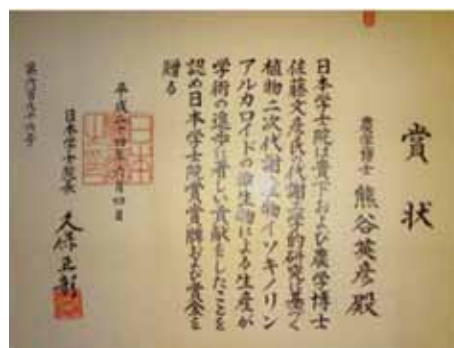 賞状
農学博士 熊谷英彦殿
日本学士院は貴下および農学博士
佐藤文彦氏の代謝工学的研究に基づく
植物二次代謝産物イソキノリン
アルカロイドの微生物による生産が
学術の進歩に著しい貢献をしたことを
認め日本学士院賞賞牌および賞金を
贈る
平成二十四年六月四日
日本学士院長 久保正彰